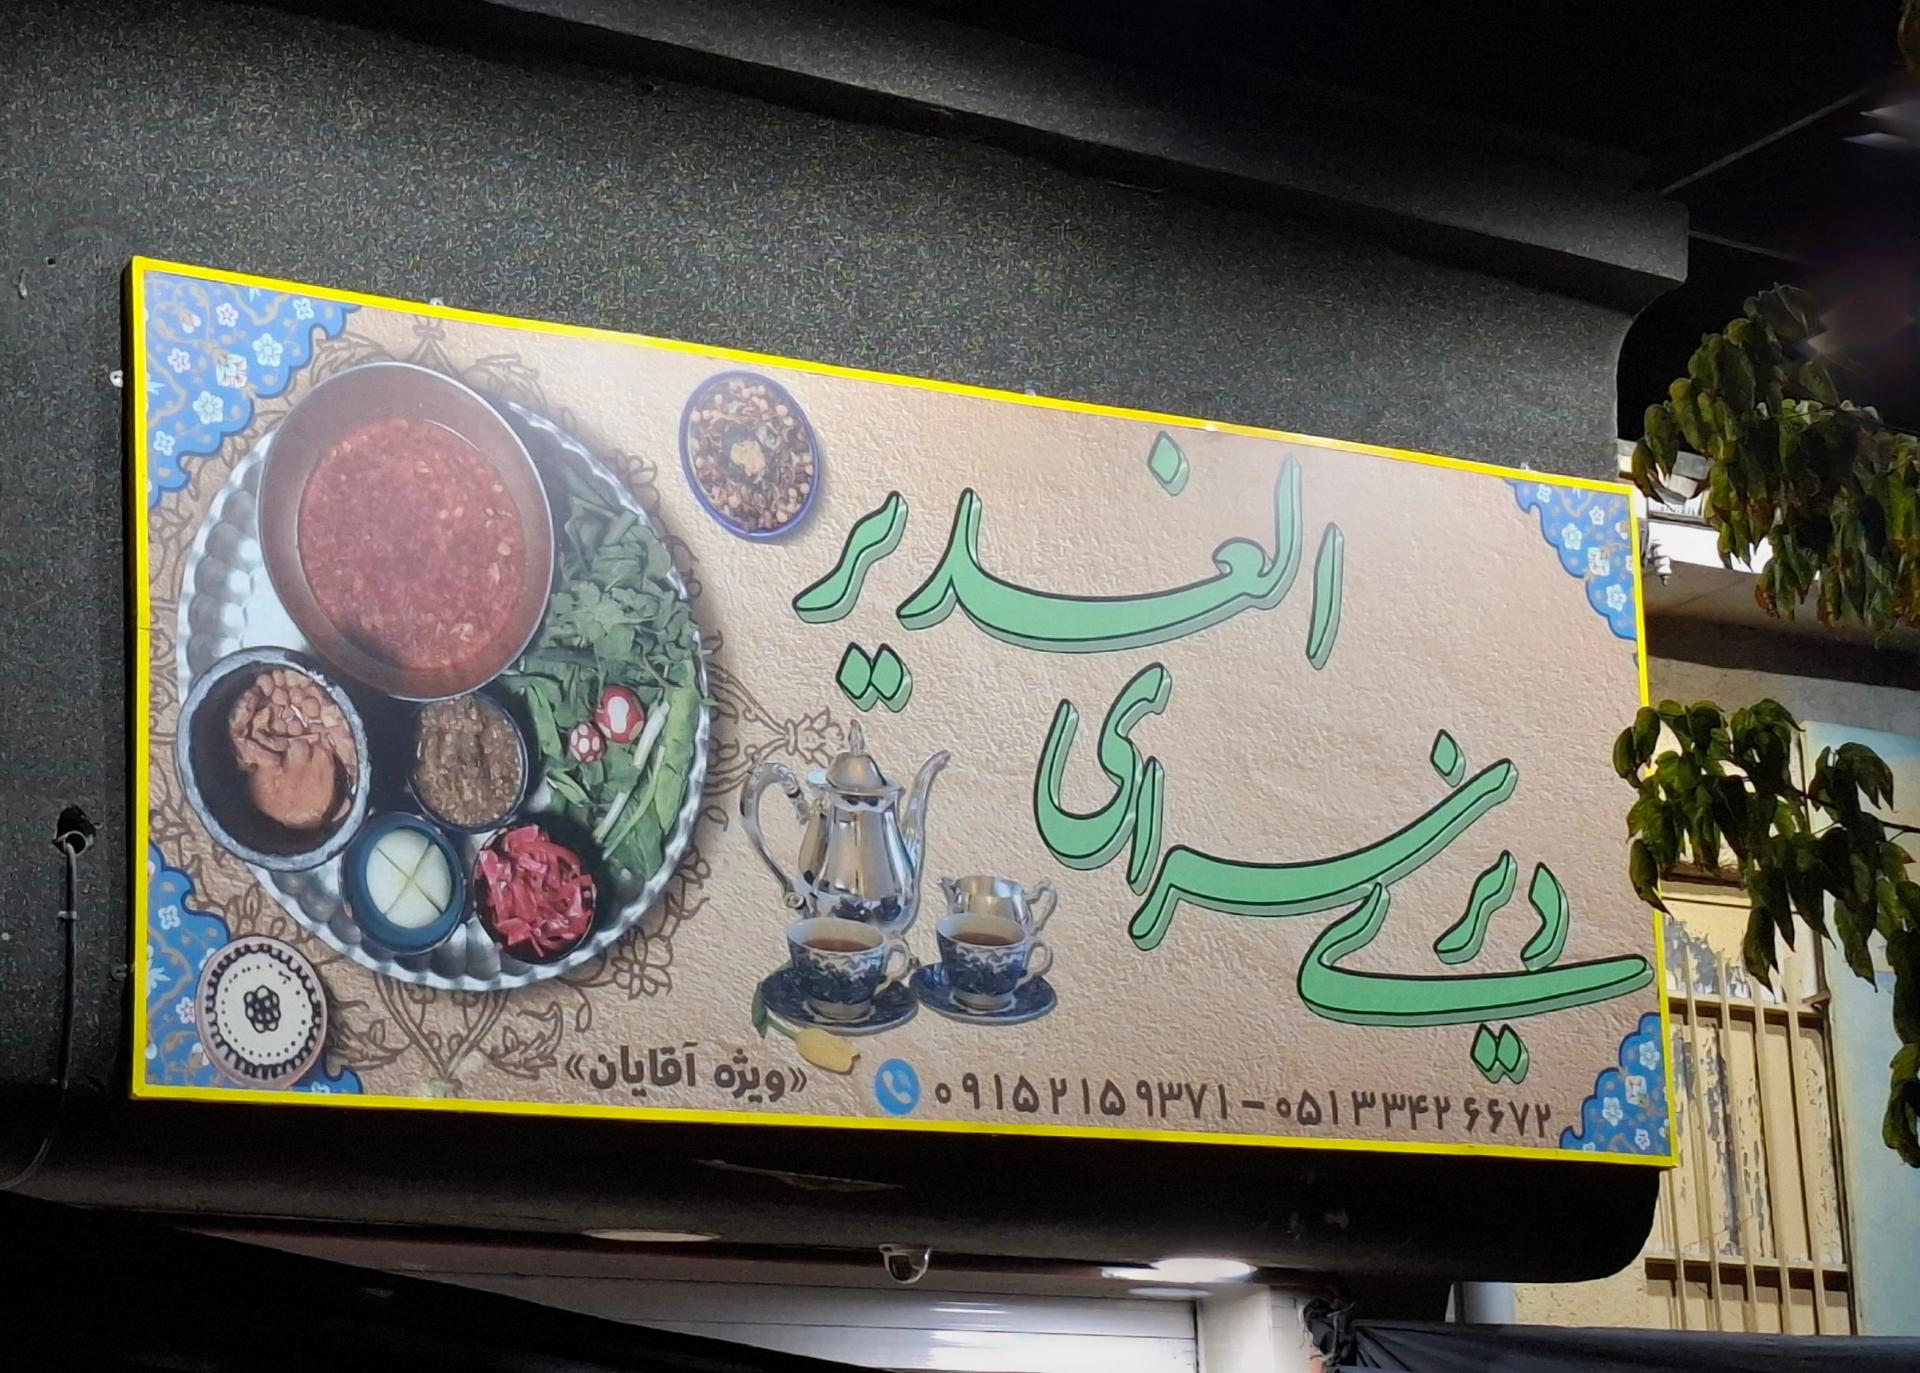 دیزی سرای
الغدیر
۰۹۱۵۲۱۵۹۳۷۱-۰۵۱۳۳۴۲۶۶۷۲
«ویژه آقایان»